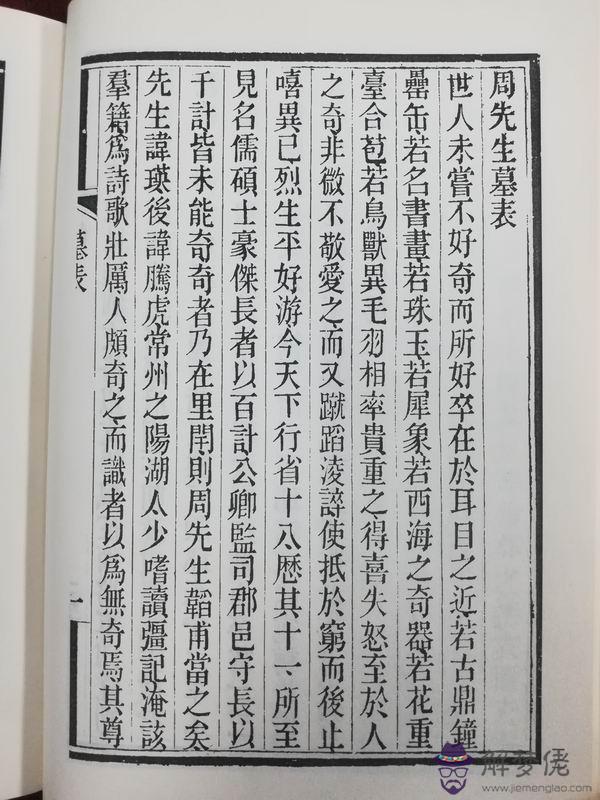 周先生墓表
世人未嘗不好奇而所好卒在於耳目之近若古鼎鐘
罍缶若名書畫若珠玉若犀象若西海之奇器若花重
臺合苞若鳥獸異毛羽相率貴重之得喜失怒至於人
之奇非微不敬愛之而又蹴蹈凌誶使抵於窮而後止
嘻異已烈生平好游今天下行省十八歷其十一所至
見名儒碩士豪傑長者以百計公卿監司郡邑守長以
千計皆未能奇奇者乃在里閈則周先生韜甫當之矣
先生諱瑛後諱騰虎常州之陽湖人少嗜讀彊記淹該
羣籍爲詩歌壯厲人頗奇之而識者以爲無奇焉其尊
墓表
一
解梦佬
www.jiemenglao.com